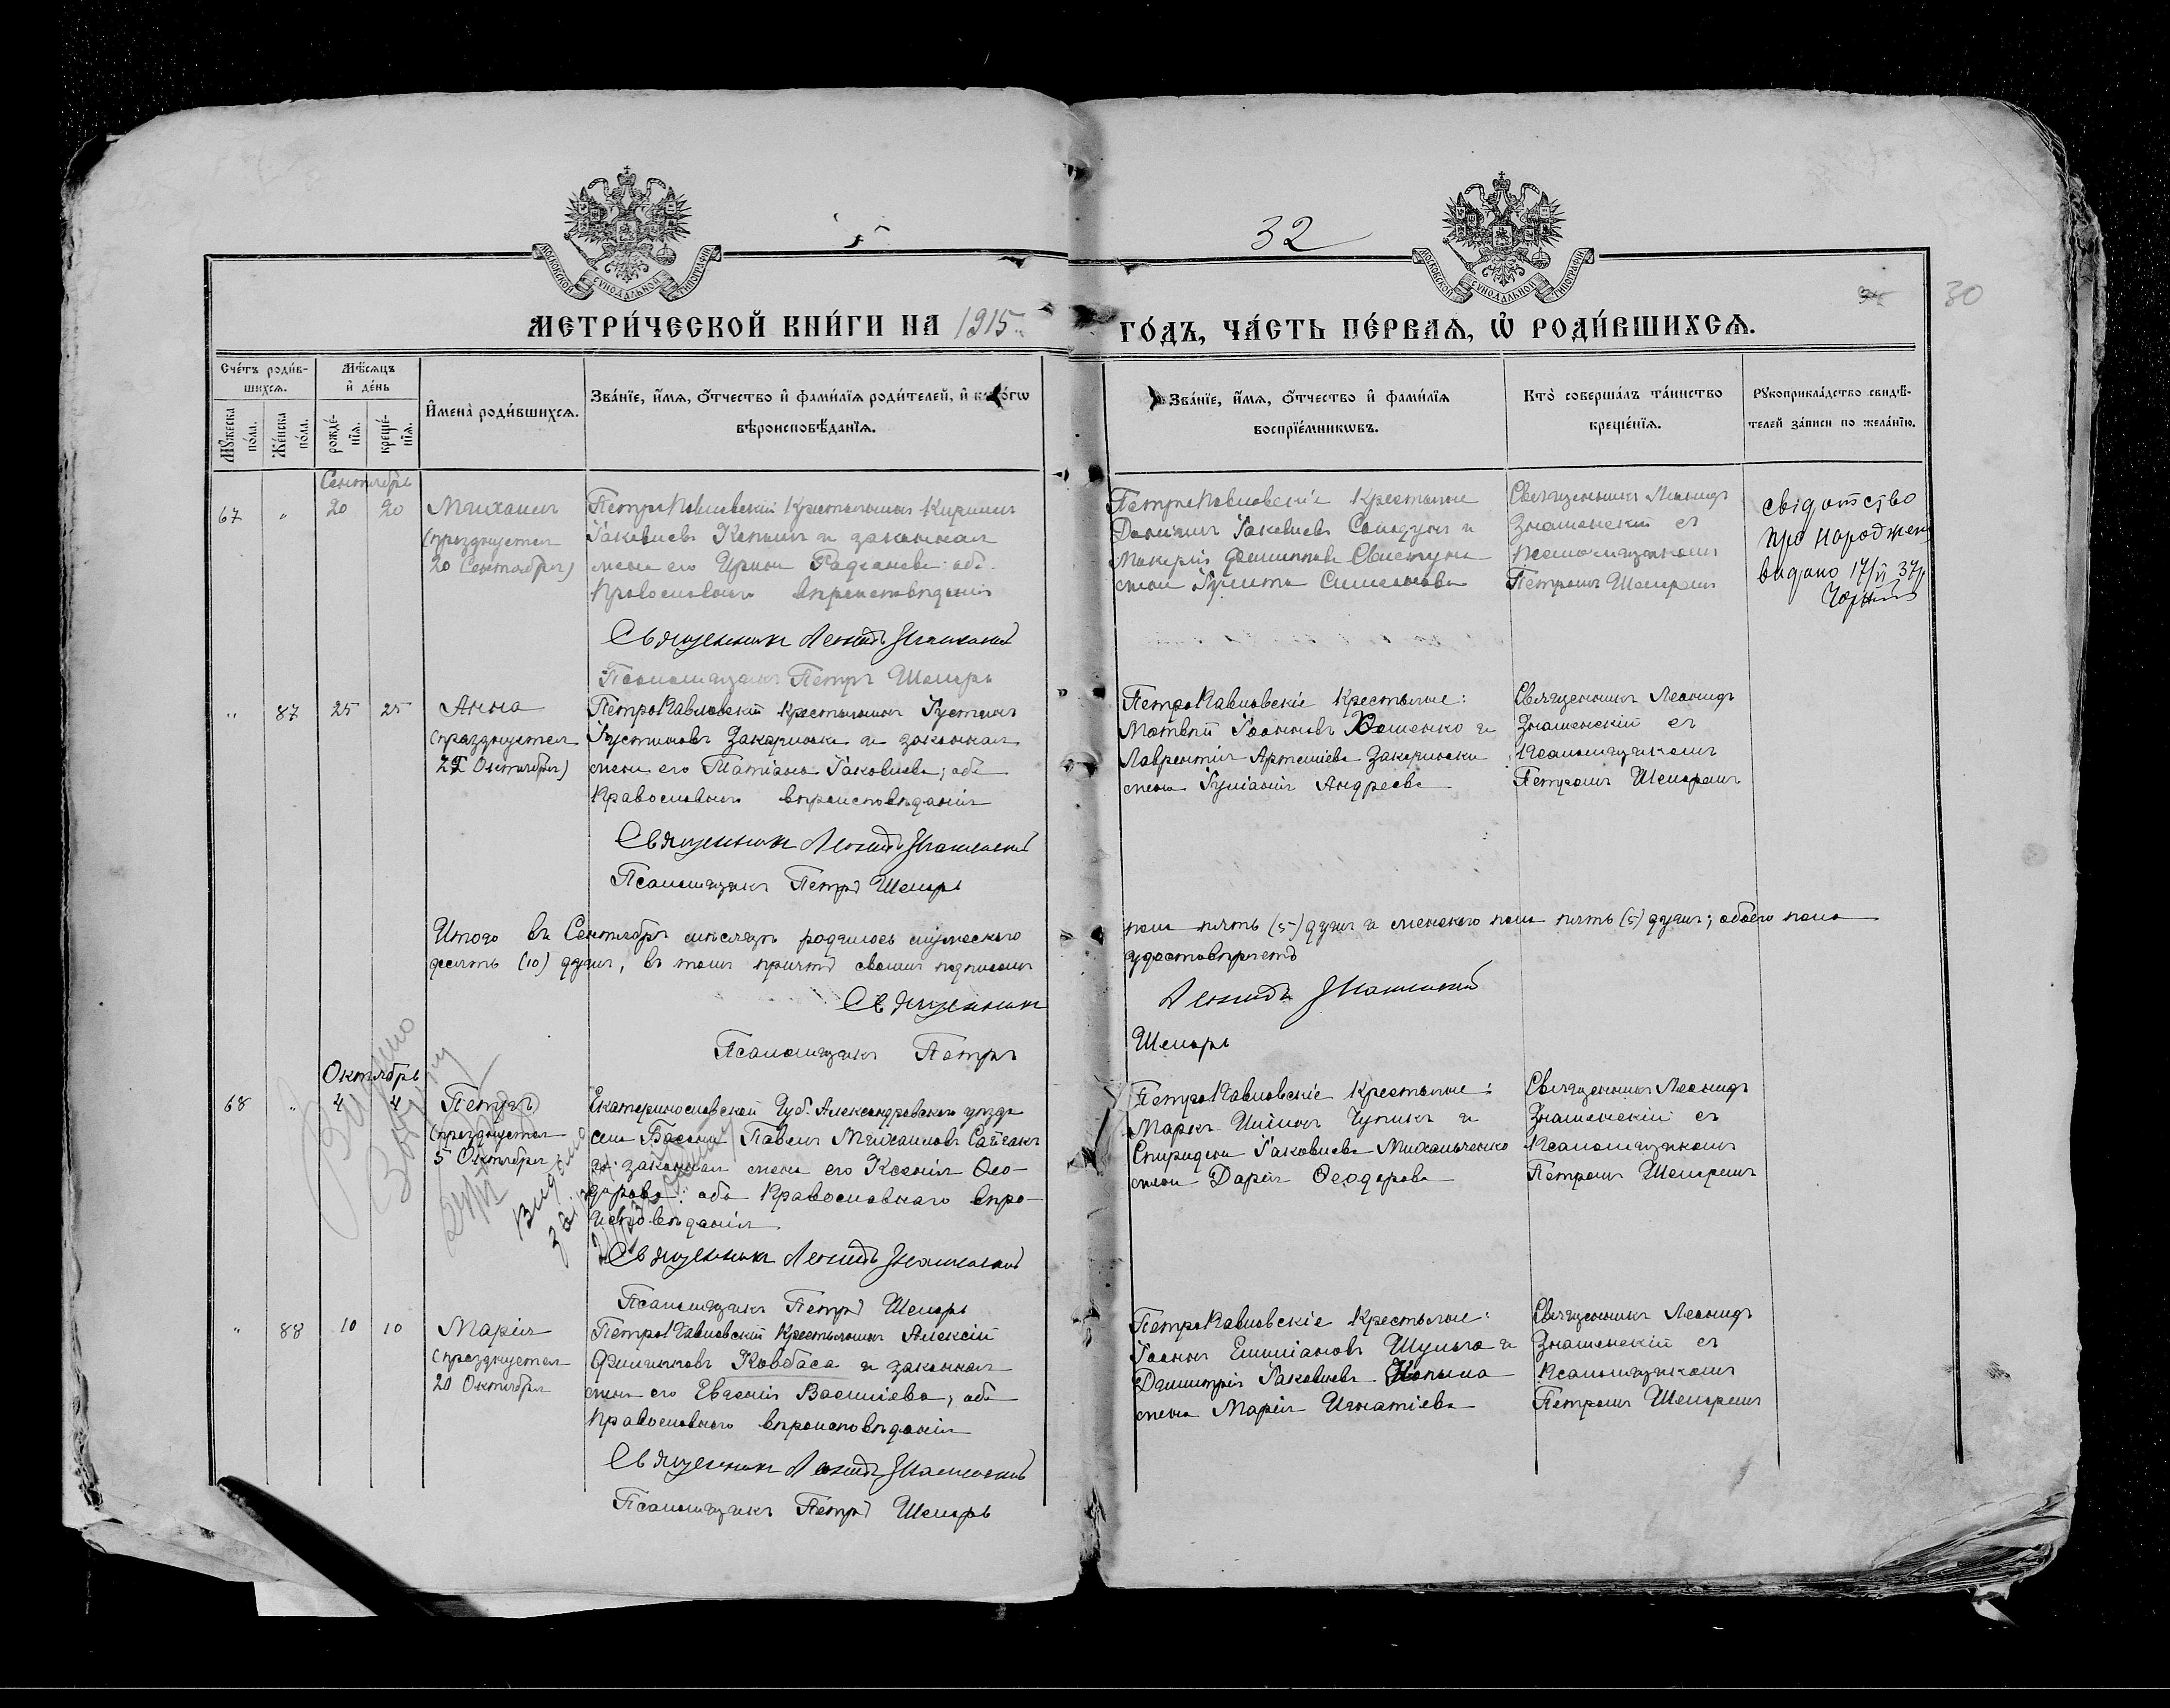 32
30
МОСКОВСКОЙ СѴНОДАЛЬНОЙ ТИПОГРАФИИ
МОСКОВСКОЙ СѴНОДАЛЬНОЙ ТИПОГРАФИИ
МЕТРИ́ЧЕСКОЙ КНИ́ГИ НА 1915
ГО́ДЪ, ЧА́СТЬ ПЕ́РВАЯ, Ѿ РОДИ́ВШИХСѦ.
Сче́тъ роди́в-
шихсѧ.
Мѣ́сѧцъ
и҆ де́нь
Мꙋ́жеска по́ла.
Же́нска по́ла.
рожде́-нїѧ.
креще́-нїѧ.
И҆мена̀ роди́вшихсѧ.
Зва́нїе, и҆́мѧ, ѻ҆́тчество и҆ фами́лїѧ роди́телей, и҆
вѣроисповѣ́данїѧ.
Зва́нїе, и҆́мѧ, ѻ҆́тчество и҆ фами́лїѧ
воспрїе́мникѡвъ.
Кто̀ соверша́лъ та́инство
креще́нїѧ.
Рꙋкоприкла́дство свидѣ́-
телей за́писи по жела́нїю.
Сентябрь
67 " 20 20 Михаилъ
(празднуется
20 Сентября)
ПетроПавловскій Крестьянинъ Кириллъ
Іаковлевъ Копылъ и законная
жена его Ирина оба
Православнаго вѣроисповѣданія
Священникъ Леонидъ Знаменскій
Псаломщикъ Петръ Шепарь
ПетроПавловскіе Крестьяне
Даніилъ Іаковлевъ и
Макарія Филиппова
жена
Священникъ Леонидъ
Знаменскій съ
Псаломщикомъ
Петромъ Шепаремъ
свідотство
про народжен
видано 17/VI 37 р
" 87 25 25 Анна
(празднуется
Октября)
ПетроПавловскій Крестьянинъ Іустинъ
Іустиновъ и законная
жена его Татіана Іаковлева; оба
Православнаго вѣроисповѣданія
Священникъ Леонидъ Знаменскій
Псаломщикъ Петръ Шепарь
ПетроПавловскіе Крестьяне:
Матвѣй Іоанновъ и
Лаврентія Артеміева
жена Іуліанія Андреева
Священникъ Леонидъ
Знаменскій съ
Псаломщикомъ
Петромъ Шепаремъ
Итого въ Сентябрѣ мѣсяцѣ родилось мужескаго
пола пять (5) душъ и женскаго пола пять (5) душъ; обоего пола
десять (10) душъ, въ томъ причтъ своимъ подписомъ
удостовѣряетъ
Священникъ
Леонидъ Знаменскій
Псаломщикъ Петръ
Шепарь
Октябрь
68 " 4 4 Петръ
(празднуется
5 Октября)
Екатеринославской Губ. Александровскаго уѣзда
села Павелъ Михаиловъ
и законная жена его Ксенія Ѳео-
дорова: оба Православнаго вѣро-
исповѣданія
Священникъ Леонидъ Знаменскій
Псаломщикъ Петръ Шепарь
ПетроПавловскіе Крестьяне:
Маркъ и
Спиридона Іаковлева Михальченко
жена Дарія Ѳеодорова
Священникъ Леонидъ
Знаменскій съ
Псаломщикомъ
Петромъ Шепаремъ
" 88 10 10 Марія
(празднуется
20 Октября
ПетроПавловскій Крестьянинъ Алексій
Филипповъ Ковбаса и законная
жена его Евгенія Василіева; оба
Православнаго вѣроисповѣданія
Священникъ Леонидъ Знаменскій
Псаломщикъ Петръ Шепарь
ПетроПавловскіе Крестьяне:
Іоаннъ Емиліановъ Шульга и
Димитрія Іаковлева Копыла
жена Марія Игнатіева
Священникъ Леонидъ
Знаменскій съ
Псаломщикомъ
Петромъ Шепаремъ